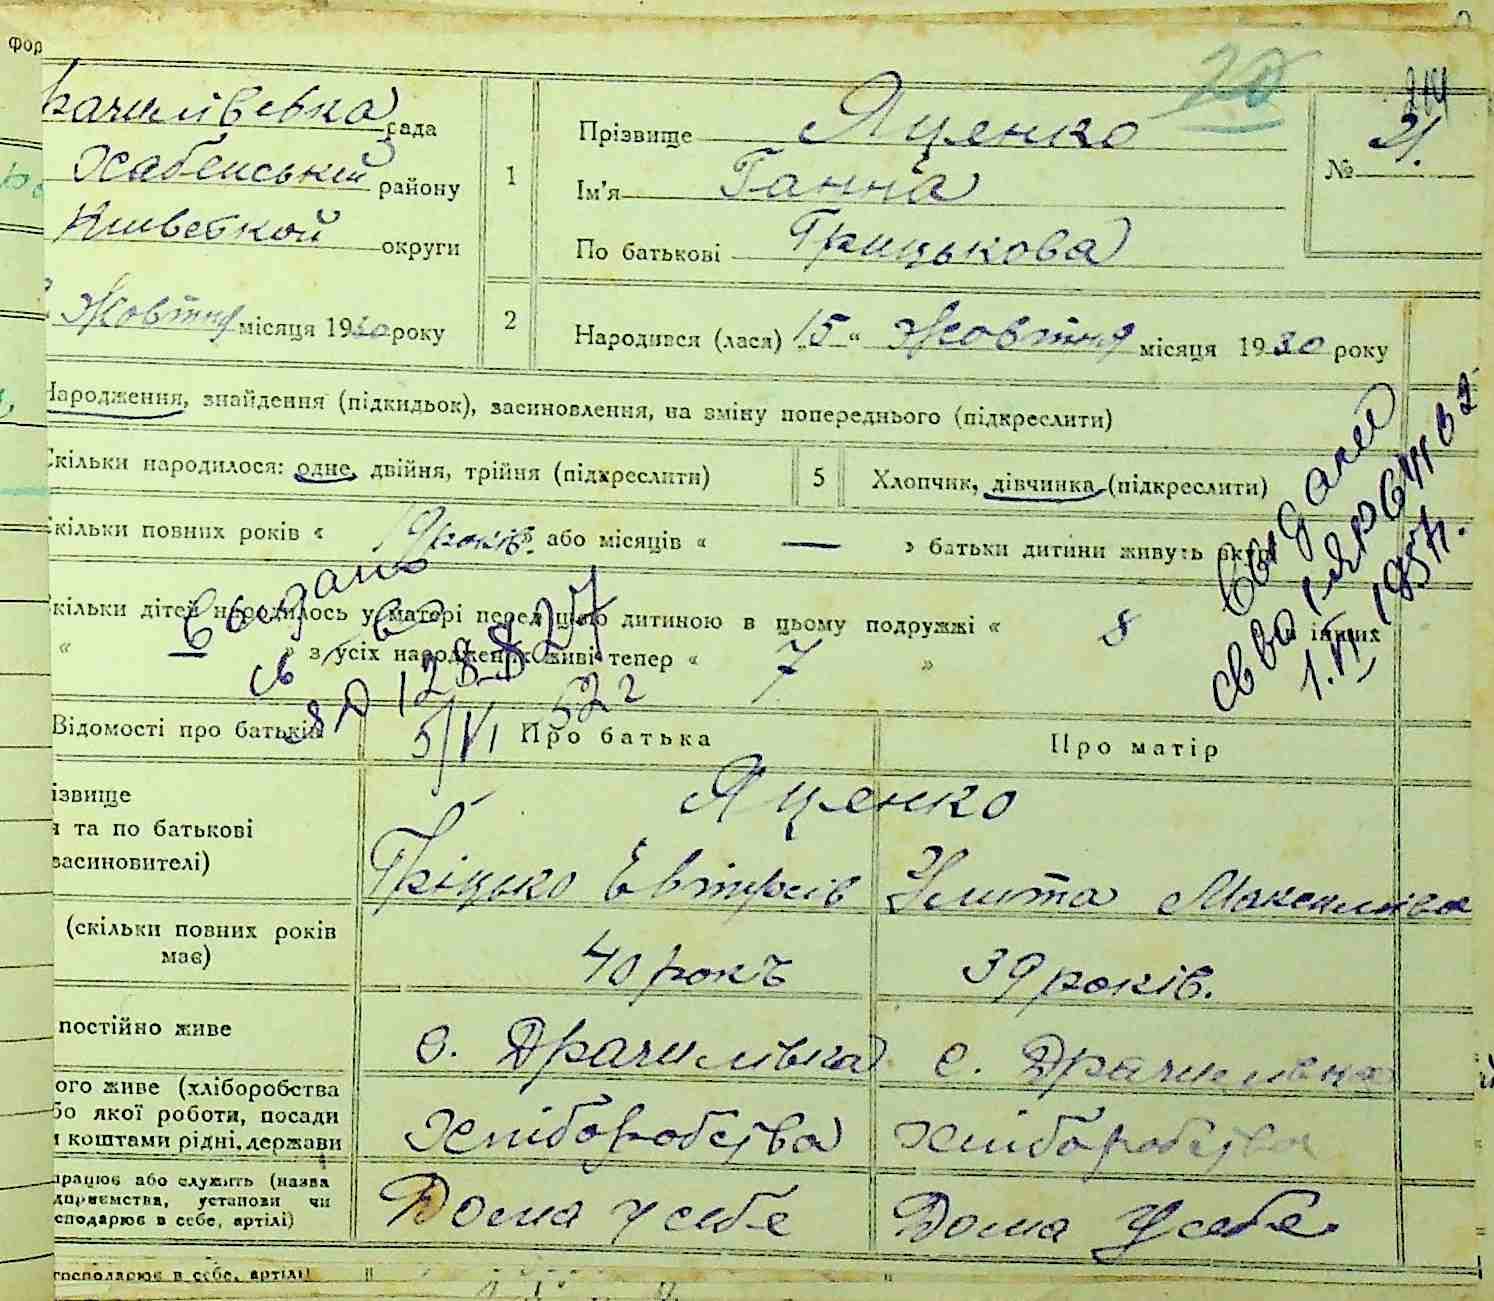 Фор
рачилівська рада
Хабенський району
округи
Жовтня місяця 1930 року
1
Прізвище Яценко
Ім'я Ганна
По батькові Грицькова
№ 21.
2
Народився (лася) „15" Жовтня місяця 1930 року
Народження, знайдення (підкидьок), засиновлення, на зміну попереднього (підкреслити)
Скільки народилося: одне, двійня, трійня (підкреслити)
5
Хлопчик, дівчинка (підкреслити)
скільки повних років « 19 років » або місяців « — » батьки дитини живуть вкупі
скільки дітей народилось у матері перед цією дитиною в цьому подружжі « 8 и інших
« — » з усіх народжених живі тепер « 7 »
5/VI 52 г
1.VI 1957г.
Відомості про батьків
Про батька
Про матір
ізвище
я та по батькові
засиновителі)
Яценко
Гріцько Евтухів
Улита Максимівна
(скільки повних років
має)
40 рокъ
39 років.
постійно живе
с. Драчилівка
с. Драчилівка
ого живе (хліборобства
бо якої роботи, посади
и коштами рідні, держави
Хліборобства
хліборобства
працює або служить (назва
дприємства, установи чи
сподарює в себе, артілі)
Дома у себе
Дома у себе
господарює в себе, артілі)